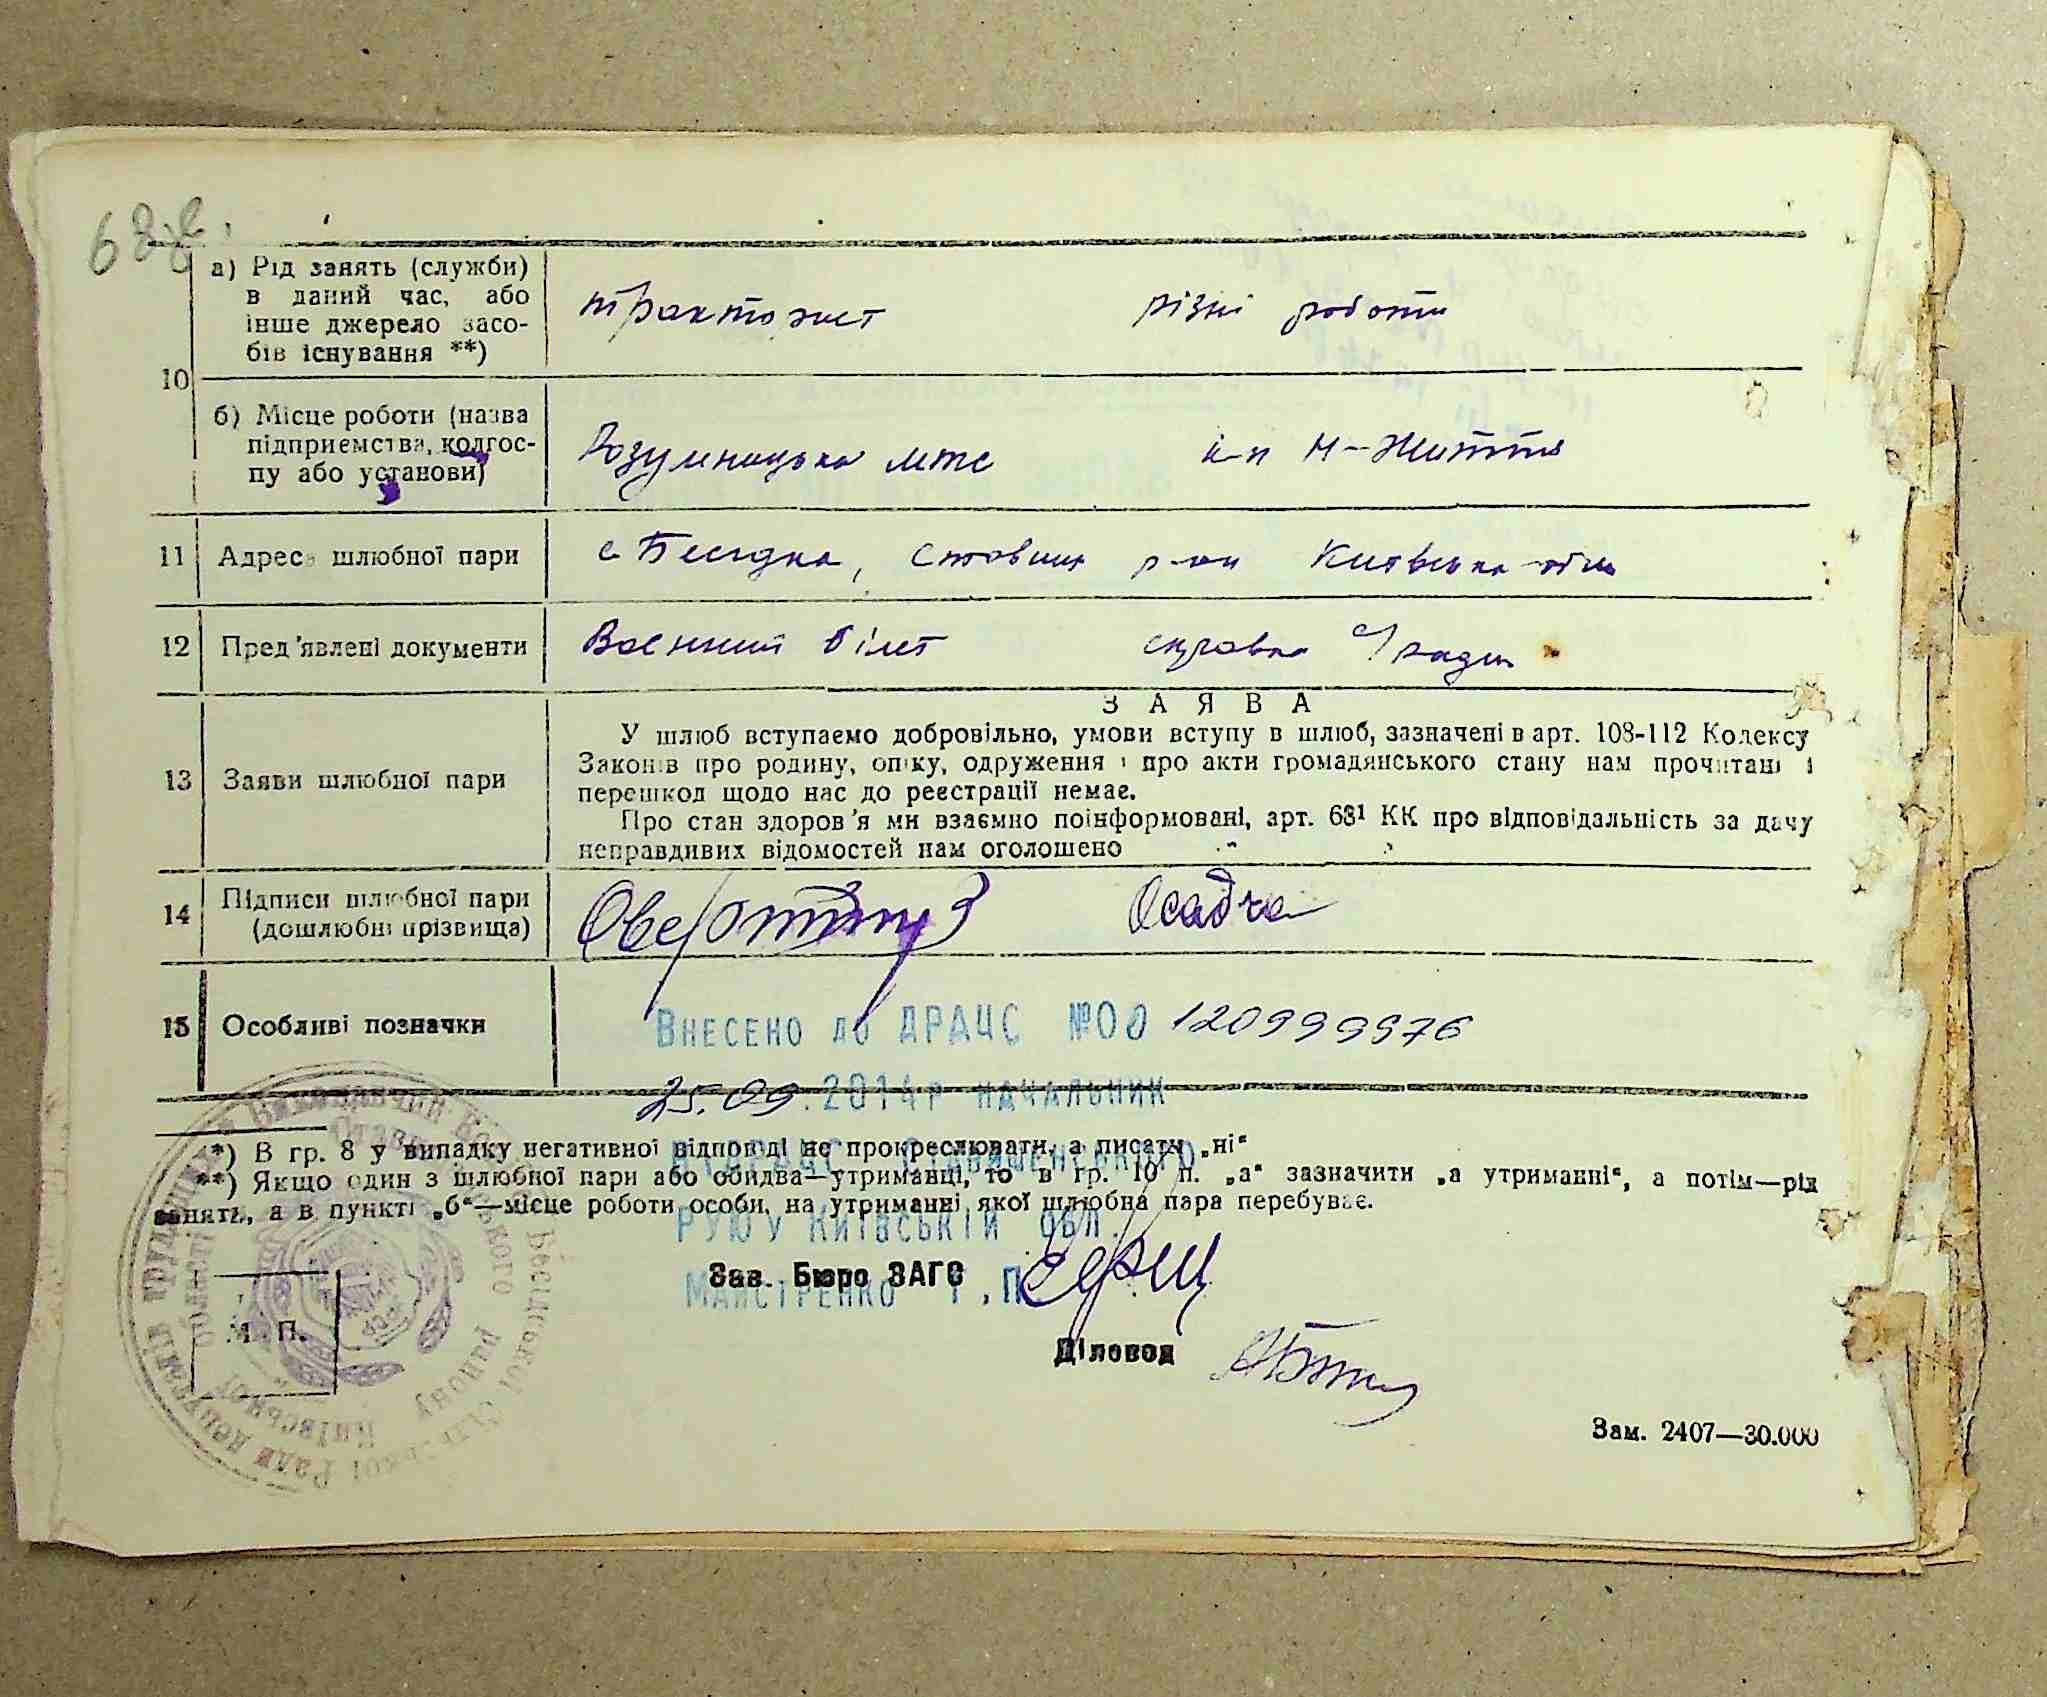 а) Рід занять (служби)
в даний час, або
інше джерело засо-
бів існування **)
тракторист різні роботи
10
б) Місце роботи (назва
підприємства, колгос-
пу або установи)
Розумницька мтс к-п Н-Життя
11 Адреса шлюбної пари с Бесідка, Ставищ р-ну Київська обл
12 Пред'явлені документи Воєнний білет справка с/ради
ЗАЯВА
13 Заяви шлюбної пари
У шлюб вступаємо добровільно, умови вступу в шлюб, зазначені в арт. 108-112 Кодексу
Законів про родину, опіку, одруження і про акти громадянського стану нам прочитані і
перешкод щодо нас до реєстрації немає.
Про стан здоров'я ми взаємно поінформовані, арт. 68¹ КК про відповідальність за дачу
неправдивих відомостей нам оголошено
14 Підписи шлюбної пари
(дошлюбні прізвища)
Осадча
15 Особливі позначки
Внесено до ДРАЦС №00 120999976
25.09.2014р начальник
*) В гр. 8 у випадку негативної відповіді не прокреслювати, а писати „ні“
Ставищенського
**) Якщо один з шлюбної пари або обидва—утриманці, то в гр. 10 п. „а“ зазначити „а утриманні“, а потім—рід
занять, а в пункті „б“—місце роботи особи, на утриманні якої шлюбна пара перебуває.
РУЮ у Київській обл.
Зав. Бюро ЗАГС
Майстренко Г.П.
М. П.
Діловод
Зам. 2407—30.000